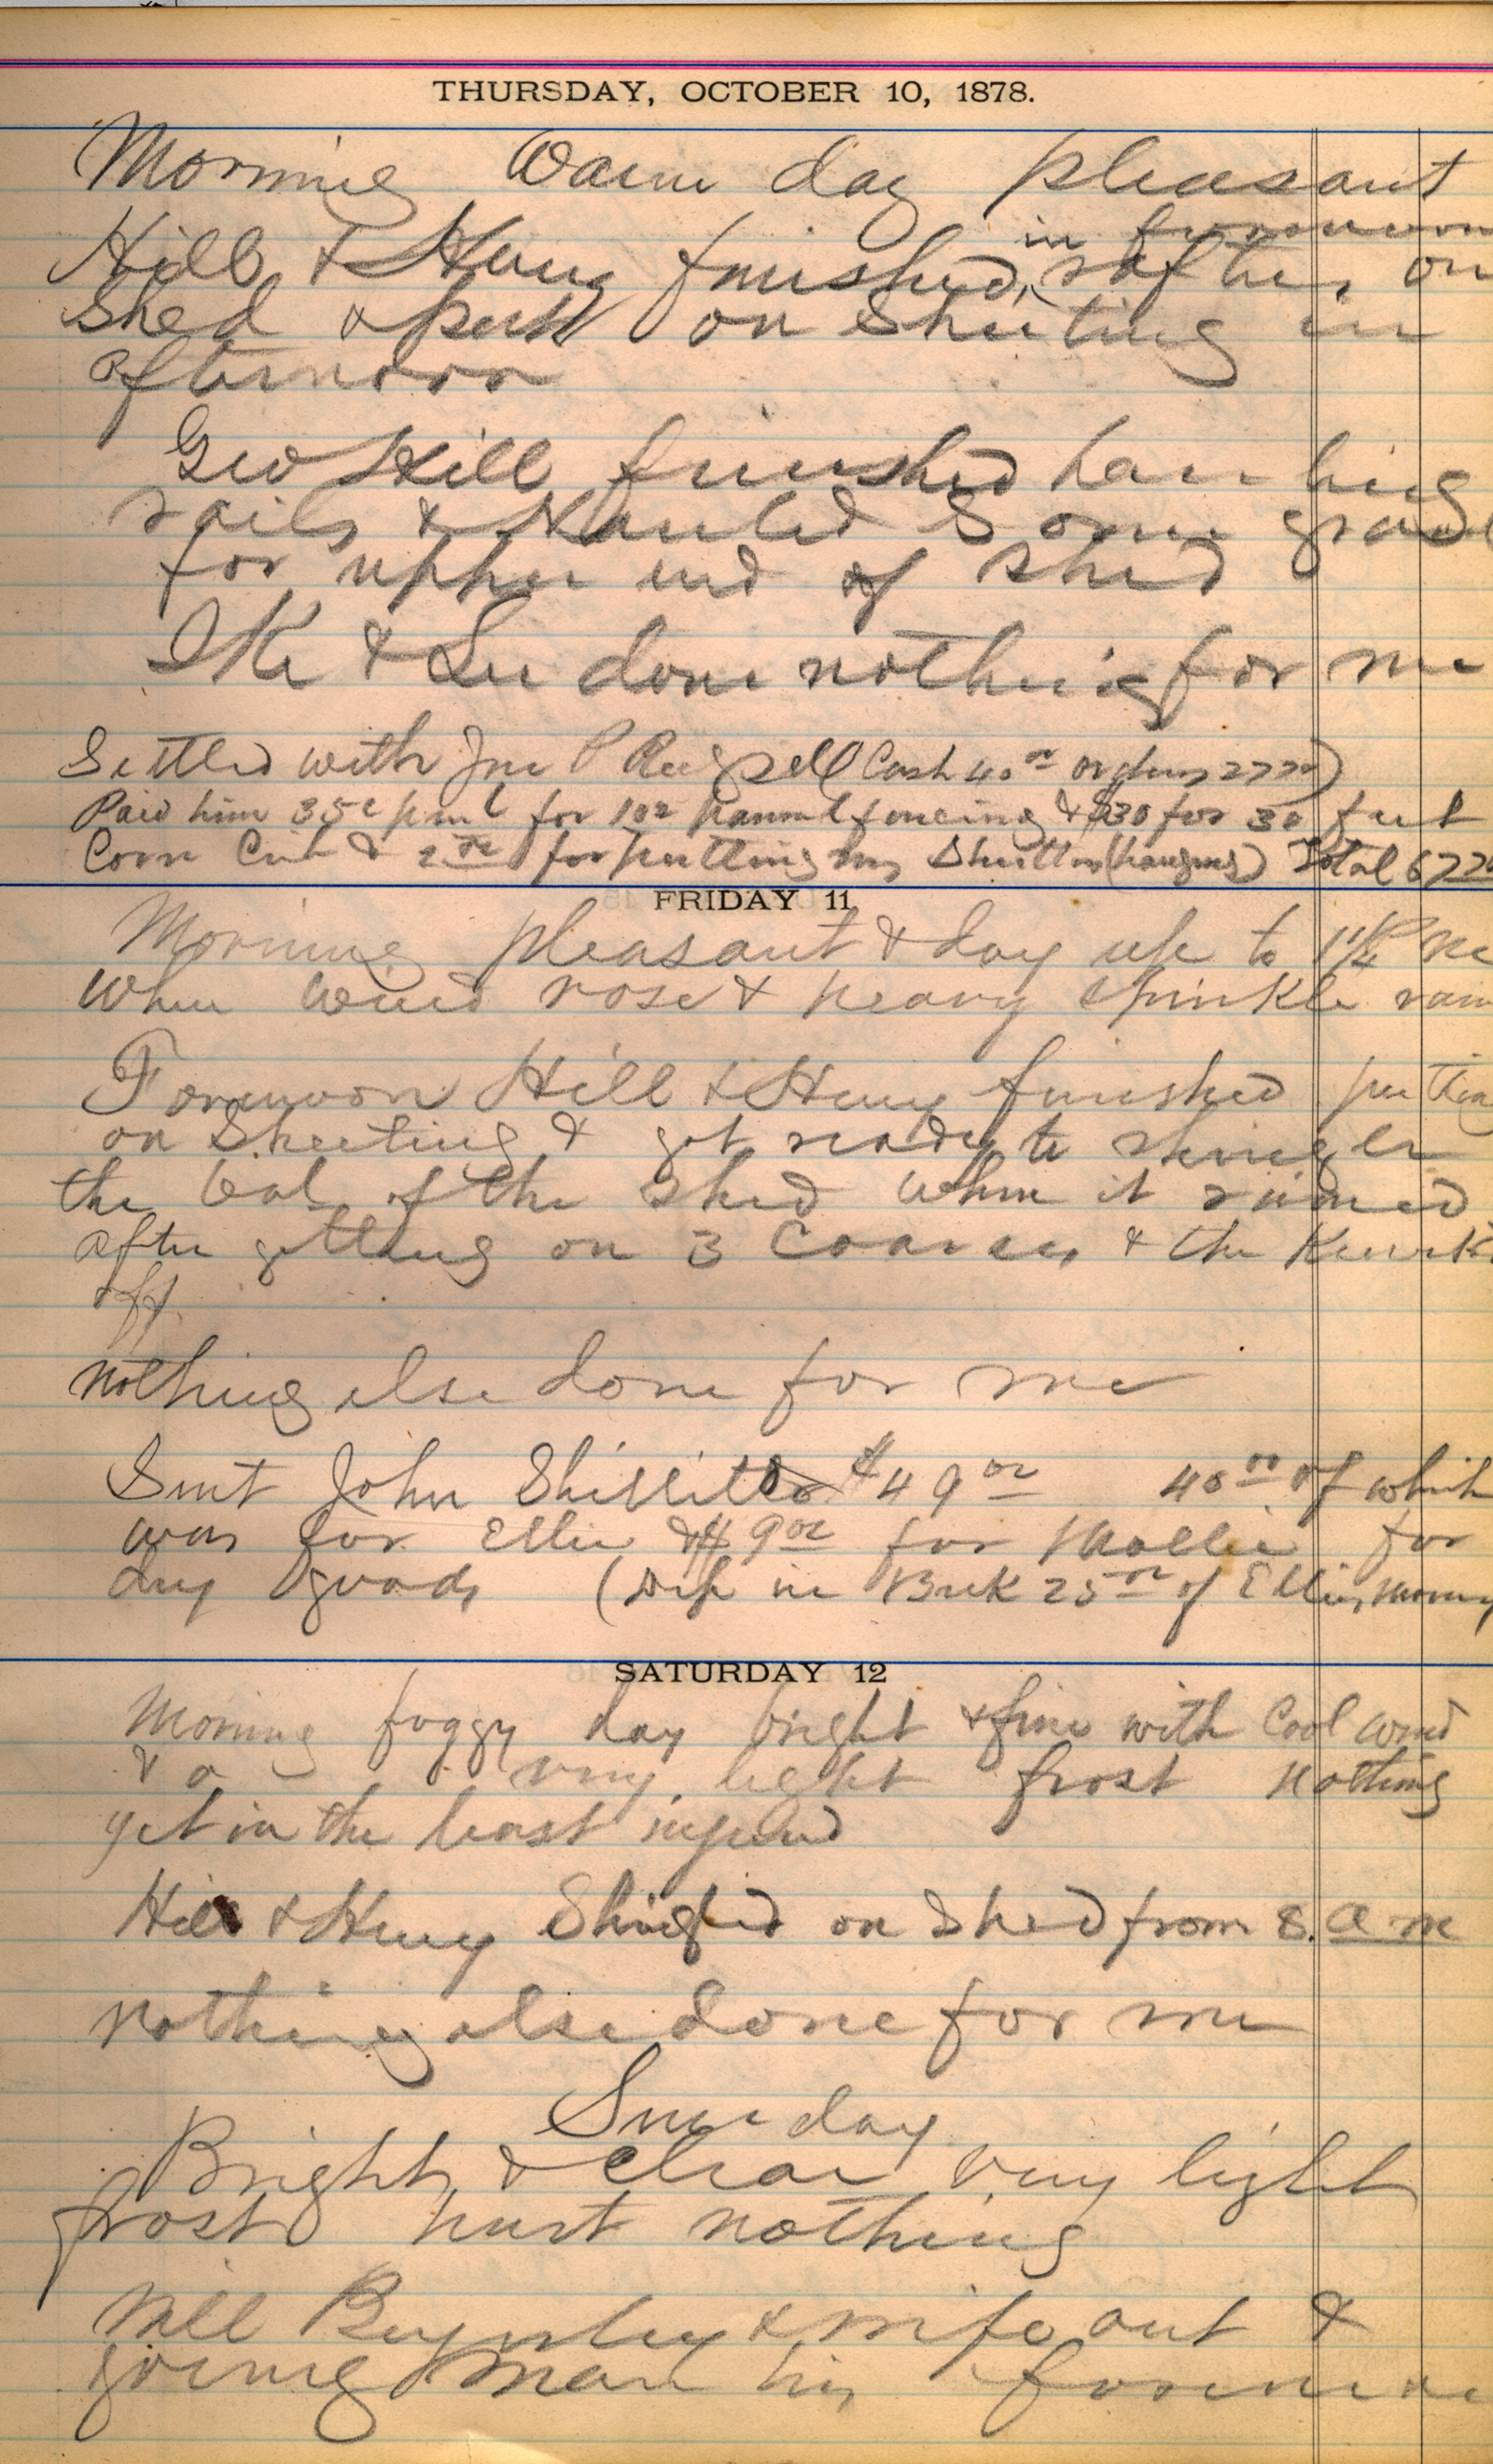 THURSDAY, OCTOBER 10, 1878.
Morning Warm day pleasant
in forenoon
Hill & Henry finished, rafters on
Shed & part on Sheeting in
afternoon
Geo Hill finished hauling
rails & Hauled Some
for upper end of shed
Ike & Lee done nothing for me
Settled with Jno P (Cash 40 00 orders 27 20)
Paid him 35c panel for 102 pannel fencing & $30 for 30 feet
Corn Crib & 2 00 for putting my Shutters (hanging) Total 67 20
FRIDAY 11
Morning pleasant & day up to
When wind rose & heavy sprinkle rain
Forenoon Hill & Henry finished putting
on Sheeting & got ready to shingle
the bal of the Shed When it rained
after getting on 3 Coarses & the
off
nothing else done for me
Sent John Shillito $49 00 40 00 of which
was for Ellie & $9 00 for Mollie for
dry goods (Dep in Bank 25 00 of Ellies money
SATURDAY 12
Morning foggy day bright & fine with Cool wind
& a very light frost nothing
yet in the least injured
Hill & Henry Shingled on Shed from 8. a m
nothing else done for me
Sunday
Bright & Clear Very light
frost hurt nothing
Will & wife out &
young man his